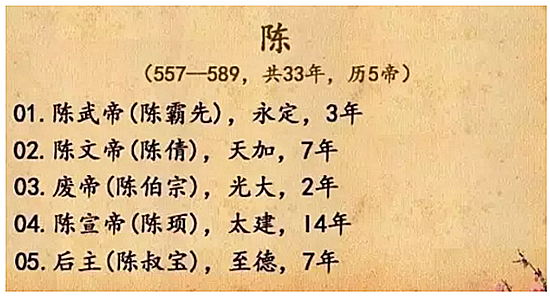 陈
（557—589，共33年，历5帝）
01.陈武帝(陈霸先)，永定，3年
02.陈文帝(陈倩)，天加，7年
03.废帝(陈伯宗)，光大，2年
04.陈宣帝(陈顼)，太建，14年
05.后主(陈叔宝)，至德，7年